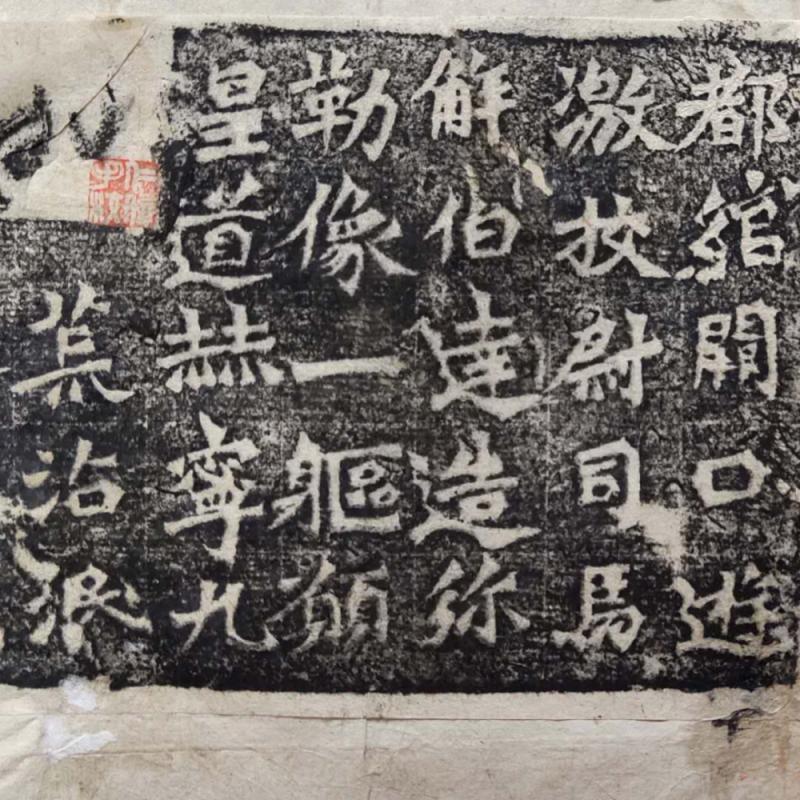 都綰闕口遊
激挍尉司馬
解伯達造弥
勒像一軀願
皇道赫寧九
荒沾泯